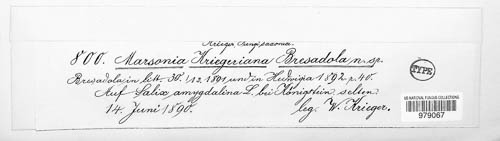 Krieger, Fungi saxonici.
800. Marsonia Kriegeriana Bresadola n. sp.
Bresadola in litt. 30./12. 1891 und in Hedwigia 1892. p. 40.
Auf Salix amygdalina L. bei Königstein selten.
14. Juni 1890. leg. W. Krieger.
TYPE
US NATIONAL FUNGUS COLLECTIONS
979067